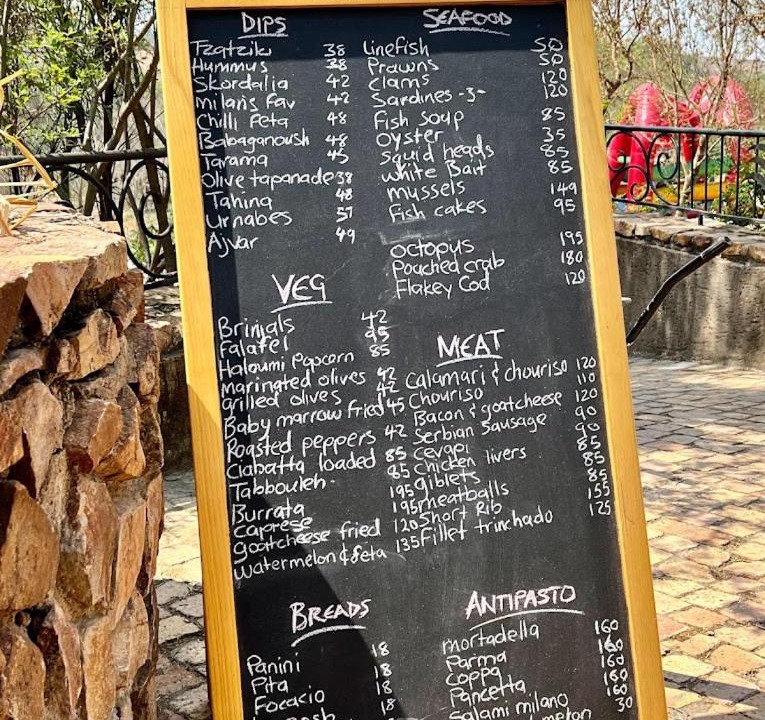 DIPS
Tzatziki 38
Hummus 38
Skordalia 42
milans Fav 42
Chilli Feta 48
Babaganoush 48
Tarama 45
Olive tapanade 38
Tahina 48
Urnabes 57
Ajvar 49
SEAFOOD
Linefish 50
Prawns 50
Clams 120
Sardines -3- 120
Fish soup 85
oyster 35
squid heads 85
white Bait 85
mussels 149
Fish cakes 95
octopus 195
Pouched crab 180
Flakey Cod 120
VEG
Brinjals 42
Falafel 95
Haloumi Popcorn 85
marinated olives 42
grilled olives 42
Baby marrow fried 45
Roasted peppers 42
Ciabatta loaded 85
Tabbouleh 85
Burrata 195
Caprese 195
goatcheese fried 120
watermelon & feta 135
MEAT
Calamari & chouriso 120
Chouriso 110
Bacon & goatcheese 120
Serbian Sausage 90
Cevapi 90
Chicken livers 85
giblets 85
meatballs 85
Short Rib 155
Fillet trinchado 125
BREADS
Panini 18
Pita 18
Focacio 18
18
ANTIPASTO
mortadella 160
Parma 160
Coppa 160
Pancetta 160
Salami milano 160
30